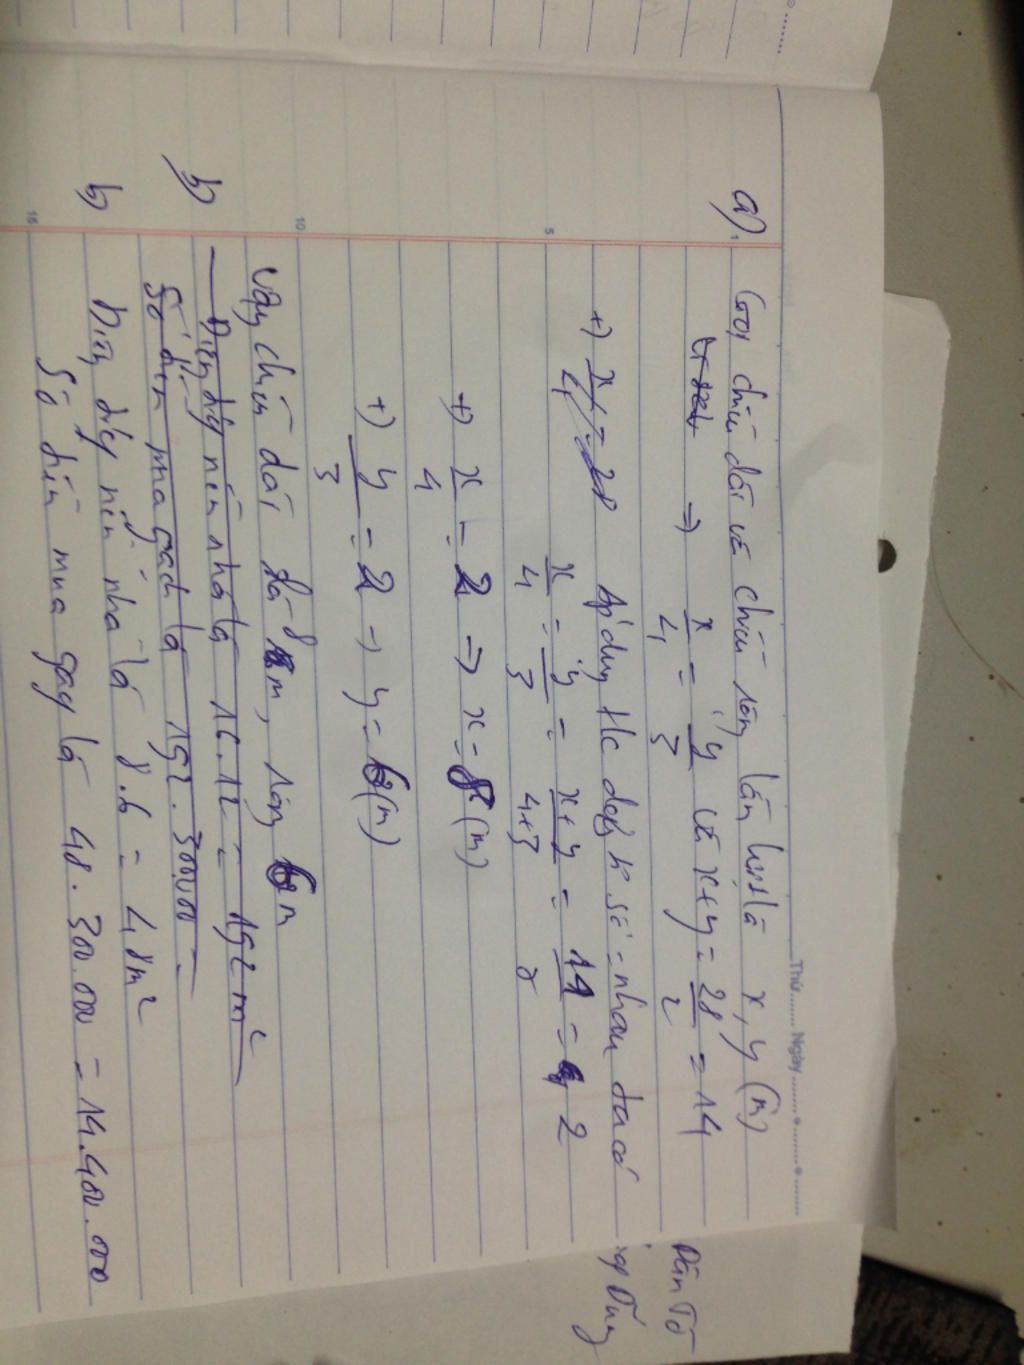 Thứ ........ Ngày ........
a) Gọi chiều dài và chiều rộng lần lượt là x, y (m)
=> x/4 = y/3 và x+y = 28/2 = 14
+) x/4 = 28 Áp dụng t/c dãy tỉ số = nhau ta có
x/4 = y/3 = x+y/4+3 = 14/7 = 2
+) x/4 = 2 => x = 8 (m)
+) y/3 = 2 => y = 6 (m)
Vậy chiều dài là 8 m, rộng 6 m
b) Diện tích nền nhà là 16.12 = 192 m²
Số tiền mua gạch là 192. 300.00 =
b) Diện tích nền nhà là 8.6 = 48m²
Số tiền mua gạch là 48. 300.000 = 14.400.000
5
10
15